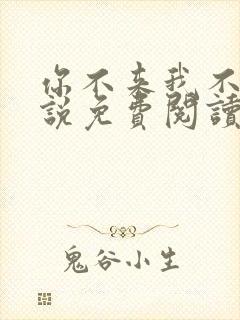 你不来我不
説免費閱讀
鬼谷小生